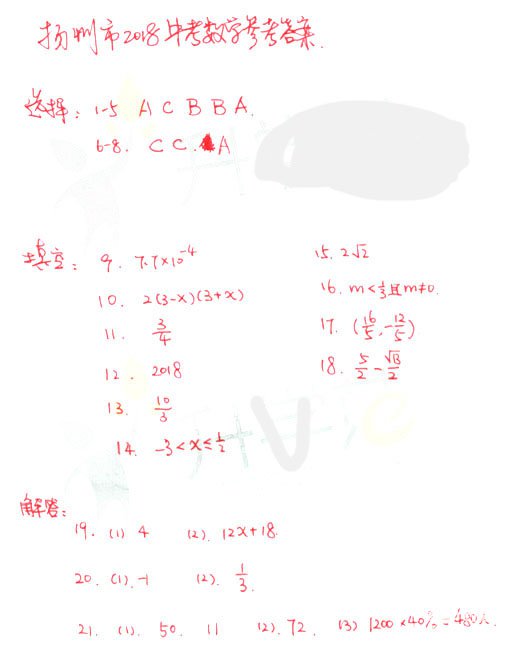 扬州市2018中考数学参考答案.
选择: 1-5 A C B B A.
6-8. C C. A
填空: 9. 7.7×10⁻⁴
10. 2(3-x)(3+x)
11. 3/4
12. 2018
13. 10/3
14. -3<x≤1/2
15. 2√2
16. m<1/3且m≠0.
17. (16/5, -12/5)
18. 5/2-√13/2
解答:
19. (1) 4 (2). 12x+18.
20. (1). -1 (2). 1/3.
21. (1). 50. 11 (2). 72. (3) 1200×40%=480人.